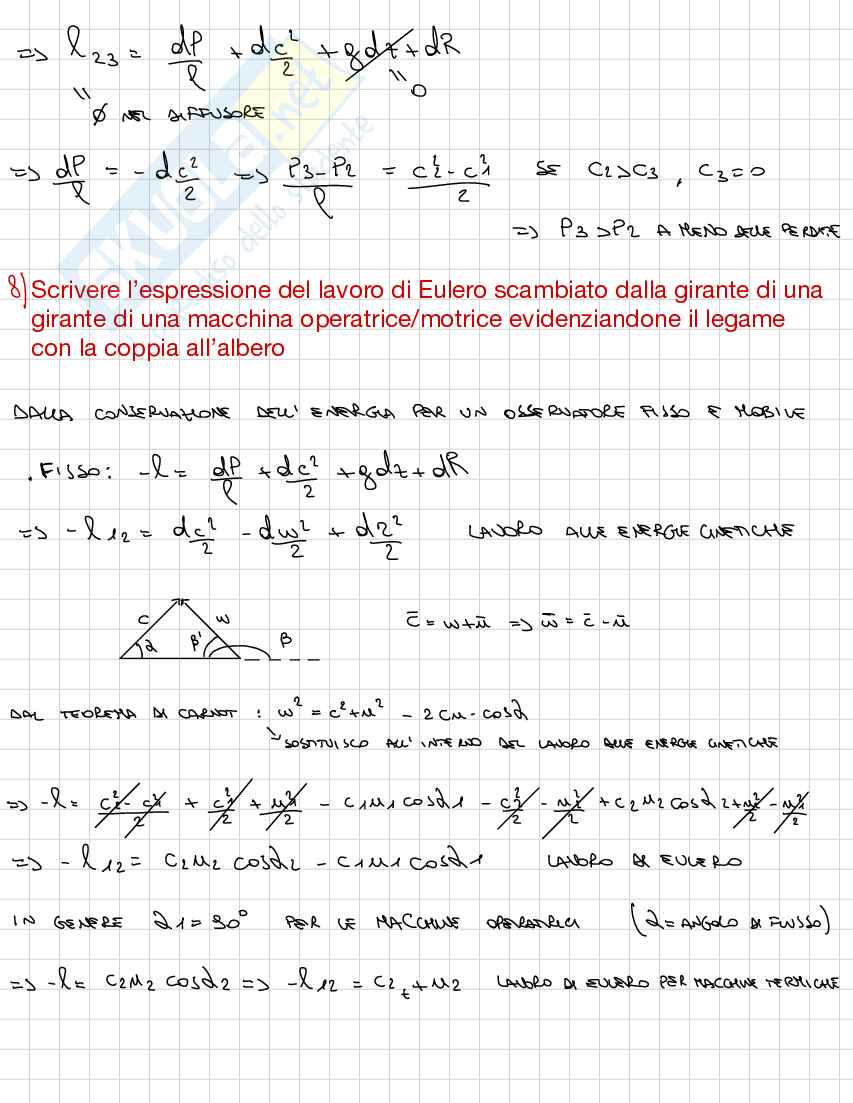 => l₂₃ = dP/ρ + dc²/2 + gdz + dR
" "
0
Ø NEL DIFFUSORE
=> dP/ρ = - dc²/2 => P₃-P₂/ρ = c₂²-c₁²/2 SE C₂>C₃ , C₃=0
=> P₃>P₂ A MENO DELLE PERDITE
8) Scrivere l'espressione del lavoro di Eulero scambiato dalla girante di una
girante di una macchina operatrice/motrice evidenziandone il legame
con la coppia all'albero
DALLA CONSERVAZIONE DELL'ENERGIA PER UN OSSERVATORE FISSO E MOBILE
. FISSO: -l = dP/ρ + dc²/2 + gdz + dR
=> -l₁₂ = dc²/2 - dw²/2 + dr²/2 LAVORO ALLE ENERGIE CINETICHE
c w
α β' β
c̄ = w+ū => w̄ = c̄ - ū
DAL TEOREMA DI CARNOT : w² = c²+u² - 2cu·cosα
SOSTITUISCO ALL'INTERNO DEL LAVORO ALLE ENERGIE CINETICHE
=> -l = c₂²-c₁²/2 + c₁²/2 + u₁²/2 - c₁u₁cosα₁ - c₂²/2 - u₂²/2 + c₂u₂cosα₂ + u₂²/2 - u₁²/2
=> -l₁₂ = c₂u₂ cosα₂ - c₁u₁cosα₁ LAVORO DI EULERO
IN GENERE α₁=90° PER LE MACCHINE OPERATRICI (α=ANGOLO DI FLUSSO)
=> -l = c₂u₂ cosα₂ => -l₁₂ = c₂ₜ+u₂ LAVORO DI EULERO PER MACCHINE TERMICHE
SKUOLA.net